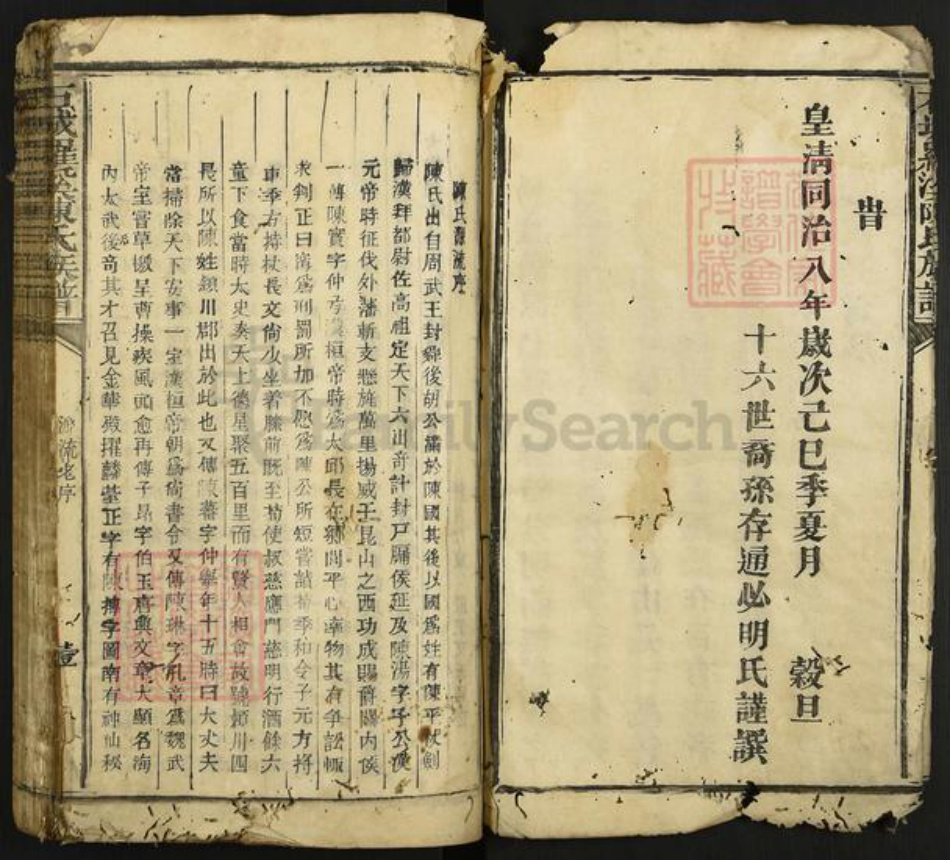 旹
皇清同治八年歲次己巳季夏月 穀旦
十六世裔孫存通必明氏謹譔
陳氏源流序
陳氏出自周武王封舜後胡公滿於陳國其後以國爲姓有陳平仗劍
歸漢拜都尉佐高祖定天下六出奇計封戸牖侯延及陳湯字子公漢
元帝時征伐外藩斬支懸旌萬里揚威于昆山之西功成賜爵關内侯
一傳陳寔字仲弓漢桓帝時爲太邱長在鄉閭平心率物其有爭訟輒
求判正曰寧爲刑罰所加不愿爲陳公所短嘗詣荀季和令子元方將
車季方持杖長文尚少坐着膝前既至荀使叔慈應門慈明行酒餘六
童下食當時太史奏天上德星聚五百里而有賢人相會故號潁川四
長所以陳姓潁川郡出於此也又傳陳蕃字仲舉年十五時曰大丈夫
當掃除天下安事一室漢桓帝朝爲尚書令又傳陳琳字孔章爲魏武
帝室嘗草檄呈曹操疾風頭愈再傳子昂字伯玉唐興文章大顯名海
内太武後奇其才召見金華殿擢麟臺正字有陳摶字圖南有神仙秘
源流老序
壹
石城羅溪陳氏族譜
FamilySearch